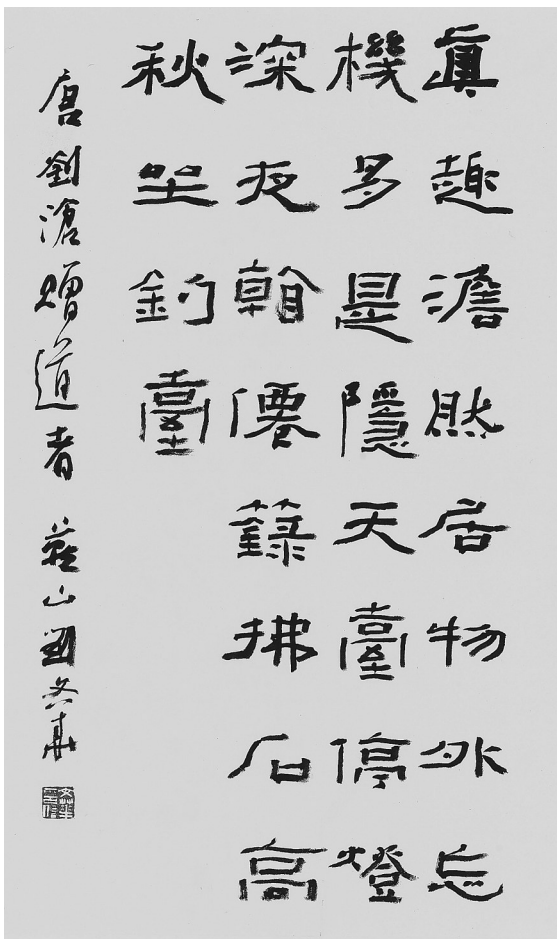 眞趣澹然居物外忘
機多是隱天臺停燈
深夜看僊籙拂石高
秋坐釣臺
唐劉滄贈道者 燕山劉文華